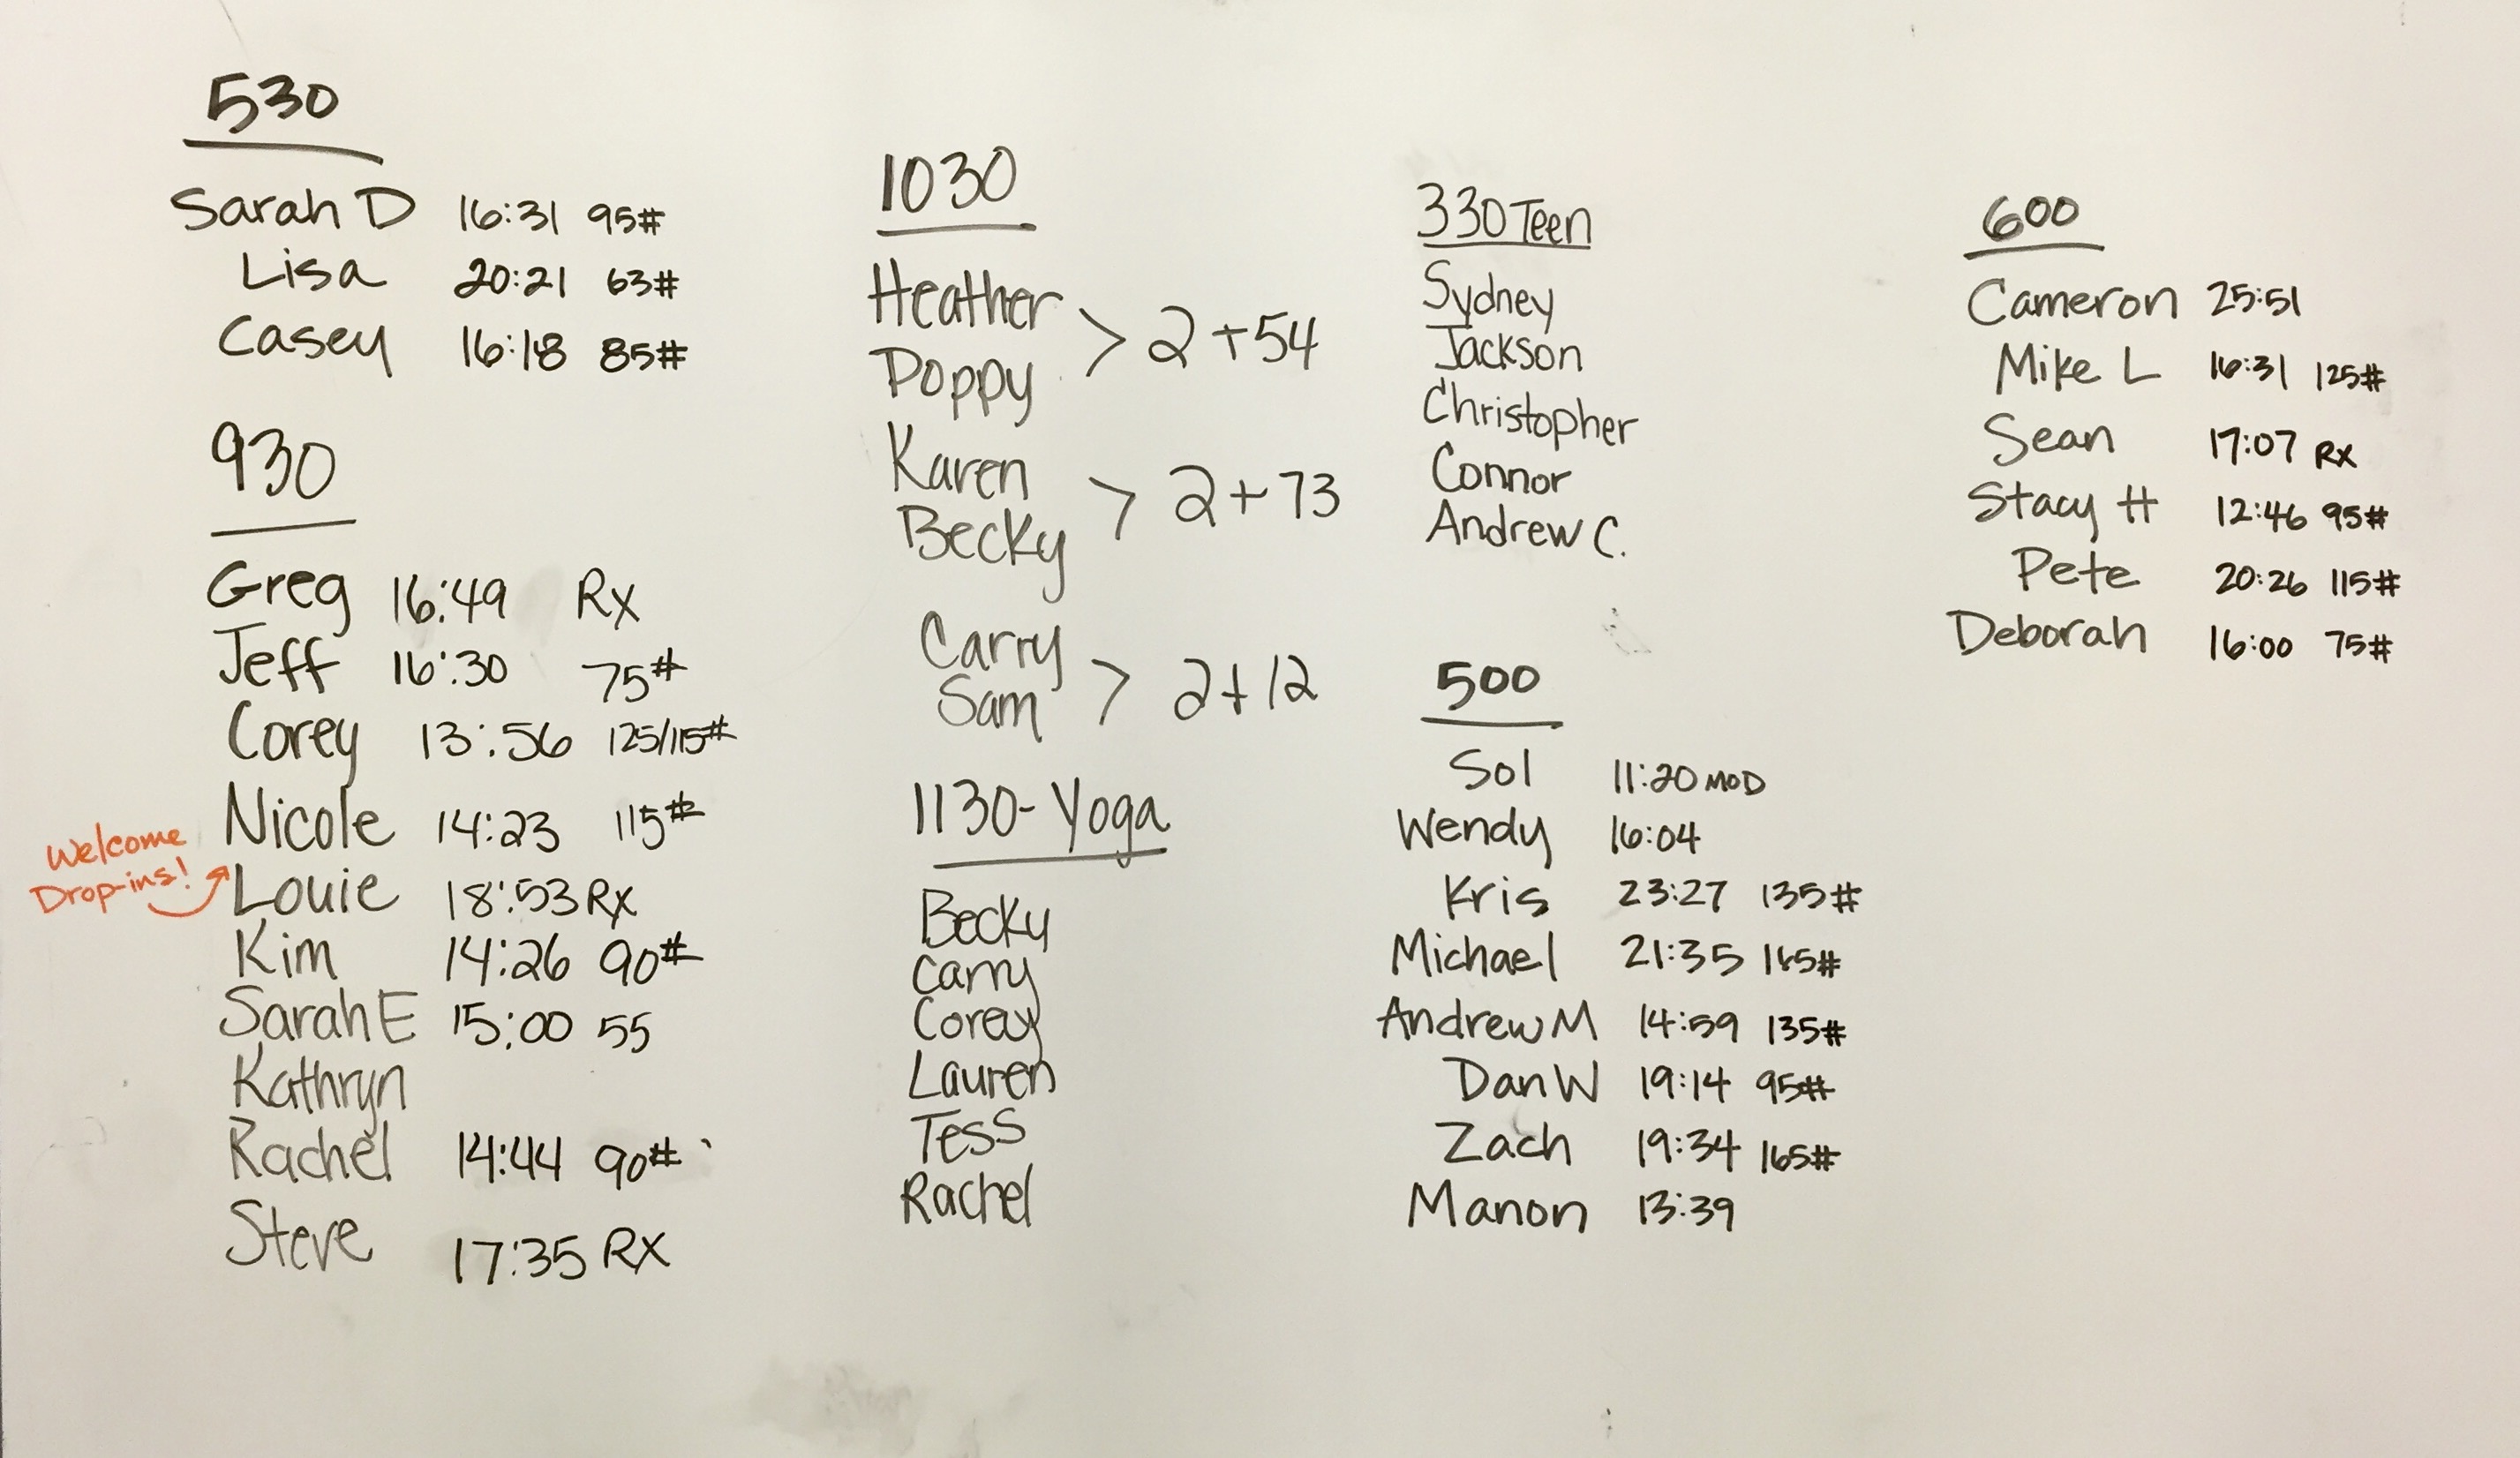 530
Sarah D 16:31 95#
Lisa 20:21 63#
Casey 16:18 85#
930
Greg 16:49 Rx
Jeff 16:30 75#
Corey 13:56 125/115#
Nicole 14:23 115#
Welcome
Drop-ins!
Louie 18:53 Rx
Kim 14:26 90#
Sarah E 15:00 55
Kathryn
Rachel 14:44 90#
Steve 17:35 RX
1030
Heather
Poppy
> 2+54
Karen
Becky
> 2+73
Carry
Sam
> 2+12
1130-Yoga
Becky
Carry
Corey
Lauren
Tess
Rachel
330 Teen
Sydney
Jackson
Christopher
Connor
Andrew C.
500
Sol 11:20 MOD
Wendy 16:04
Kris 23:27 135#
Michael 21:35 165#
Andrew M 14:59 135#
Dan W 19:14 95#
Zach 19:34 165#
Manon 13:39
600
Cameron 25:51
Mike L 16:31 125#
Sean 17:07 RX
Stacy H 12:46 95#
Pete 20:26 115#
Deborah 16:00 75#